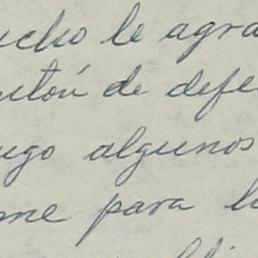 ucho le agra
ntón de defe
ngo algunos
me para l